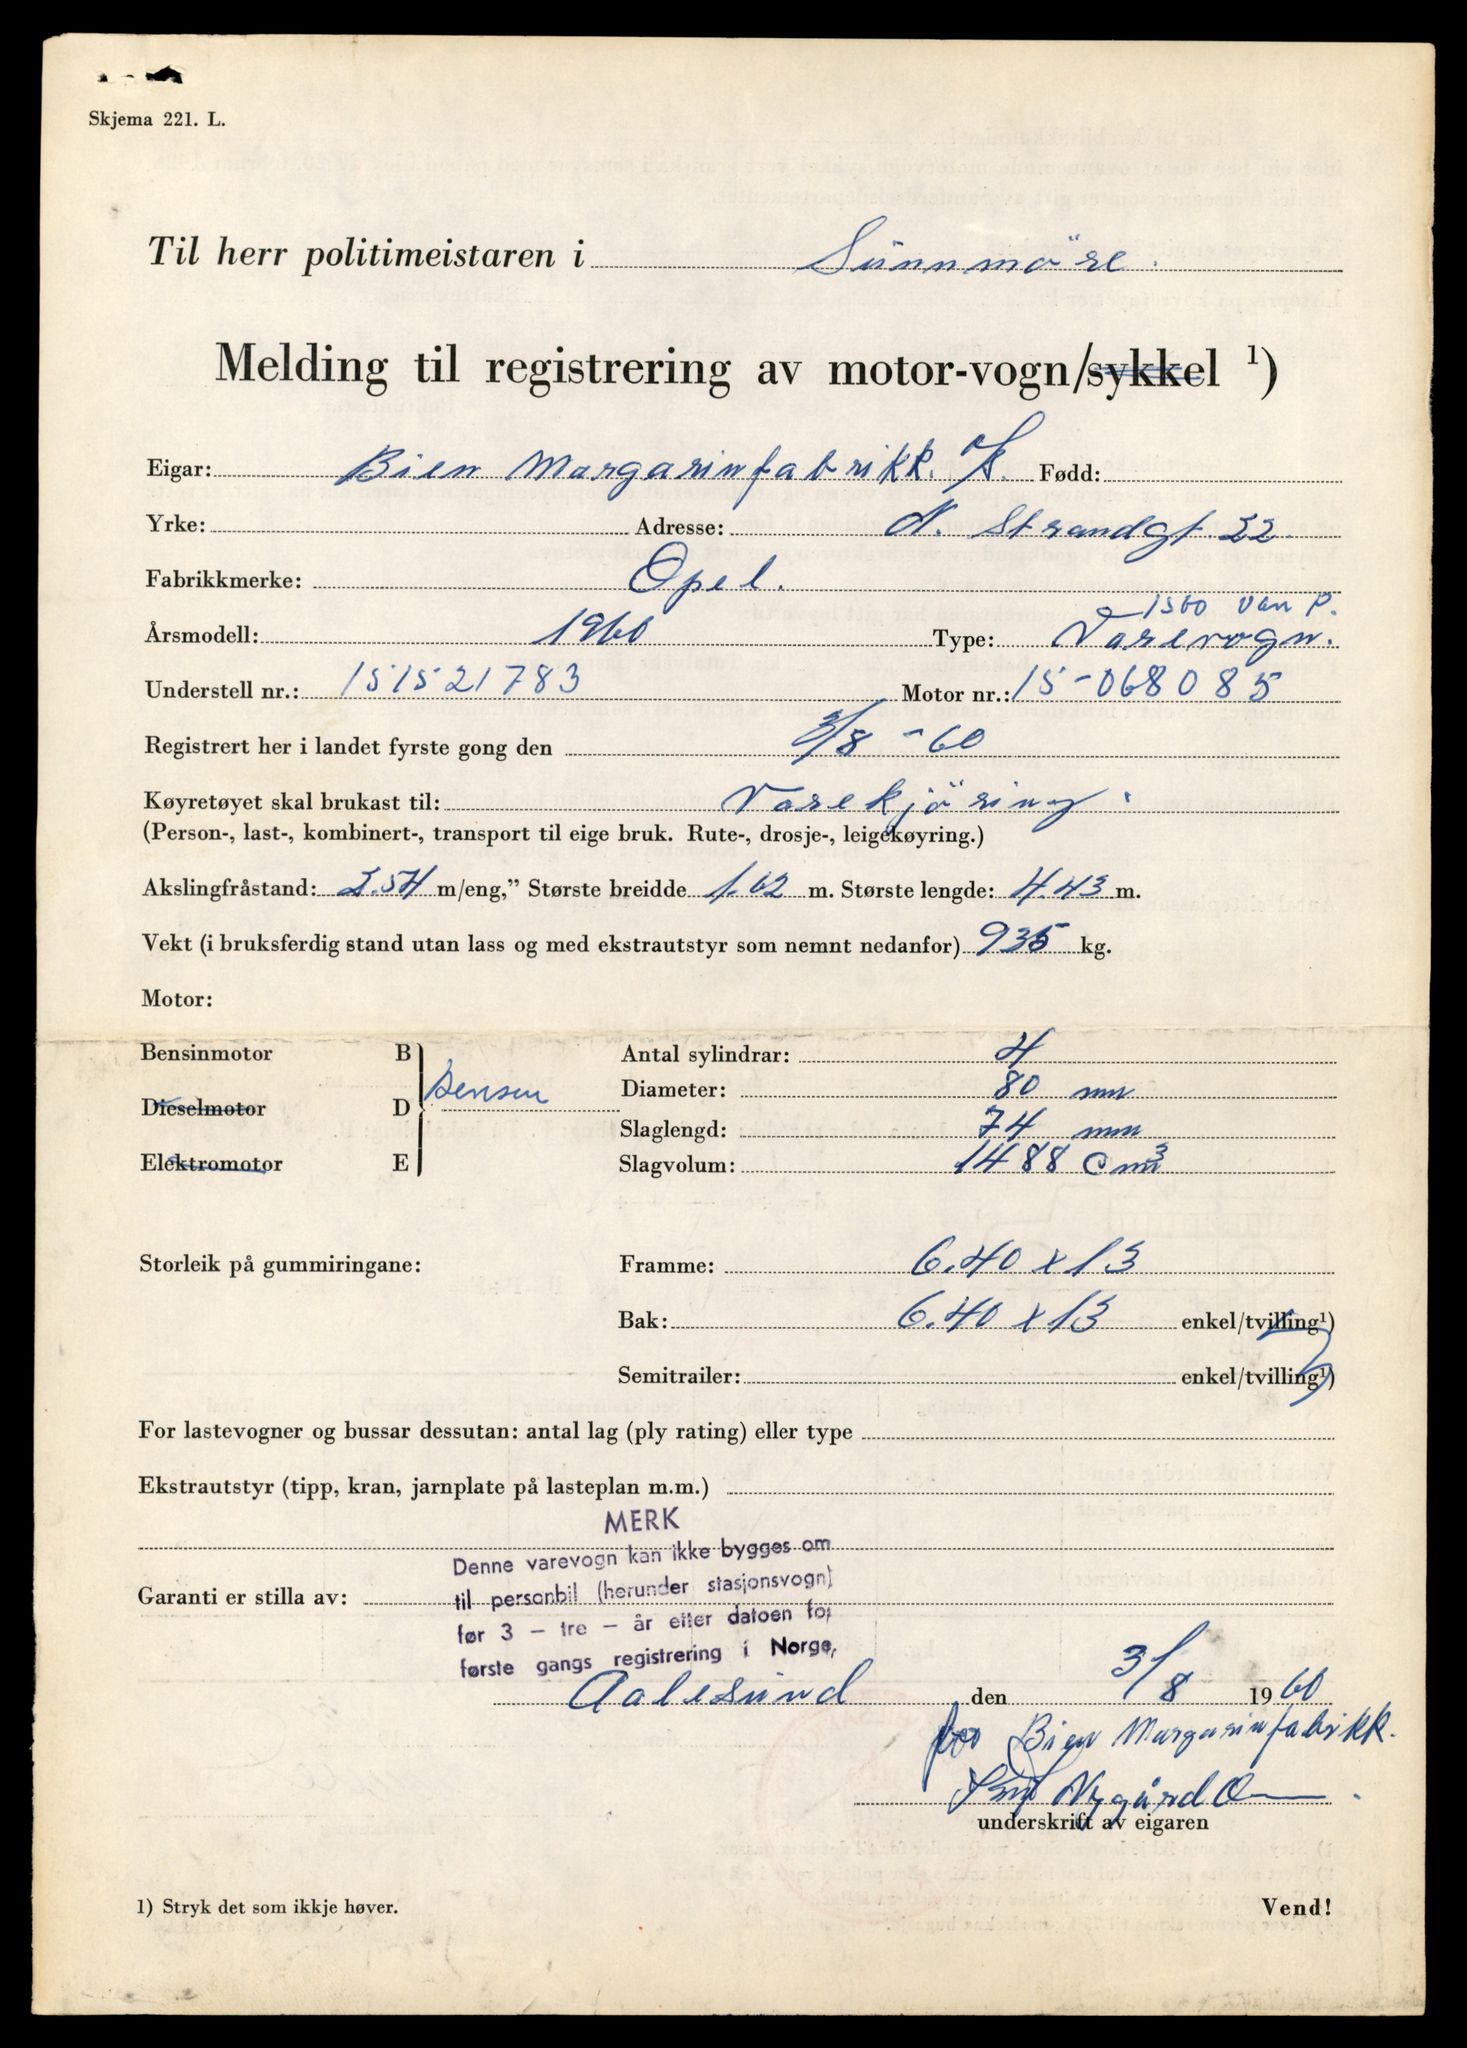 Skjema 221. L.
Til herr politimeistaren i Sünnmöre.
Melding til registrering av motor-vogn/sykkel ¹)
Eigar: Bien Margarinfabrikk. A/S. Fødd:
Yrke: Adresse: N. Strandgt. 22
Fabrikkmerke: Opel.
1500 Van P.
Årsmodell: 1960 Type: Varevogn.
Understell nr.: 151521783 Motor nr.: 15-068085
Registrert her i landet fyrste gong den 3/8 - 60
Køyretøyet skal brukast til: Varekjöring.
(Person-, last-, kombinert-, transport til eige bruk. Rute-, drosje-, leigekøyring.)
Akslingfråstand: 2.54 m/eng,” Største breidde 1.62 m. Største lengde: 4.43 m.
Vekt (i bruksferdig stand utan lass og med ekstrautstyr som nemnt nedanfor) 935 kg.
Motor:
Bensinmotor B Antal sylindrar: 4
Bensin Diameter: 80 mm
Dieselmotor D Slaglengd: 74 mm
Elektromotor E Slagvolum: 1488 cm³
Storleik på gummiringane: Framme: 6.40 x 13
Bak: 6.40 x 13 enkel/tvilling¹)
Semitrailer: enkel/tvilling¹)
For lastevogner og bussar dessutan: antal lag (ply rating) eller type
Ekstrautstyr (tipp, kran, jarnplate på lasteplan m.m.)
MERK
Denne varevogn kan ikke bygges om
Garanti er stilla av: til personbil (herunder stasjonsvogn)
før 3 — tre — år etter datoen for
første gangs registrering i Norge.
Aalesund den 3/8 1960
for Bien Margarinfabrikk.
Nygård
underskrift av eigaren
1) Stryk det som ikkje høver. Vend!